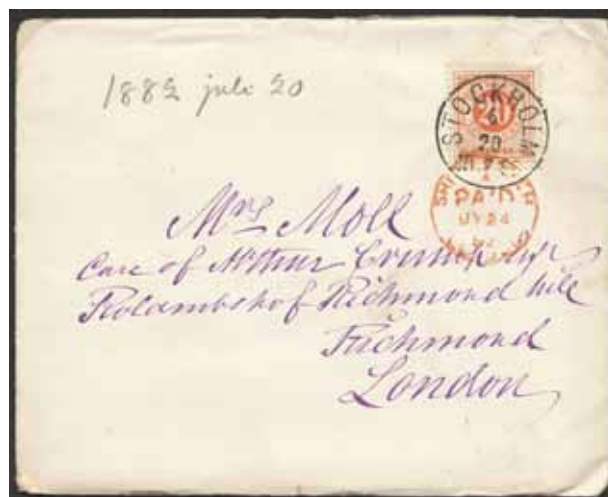 1882 juli 20
20
STOCKHOLM
6
20
PAID
JY 24
82
Mrs Moll
Care of Arthur Crump Esqr
Richmond hill
Richmond
London